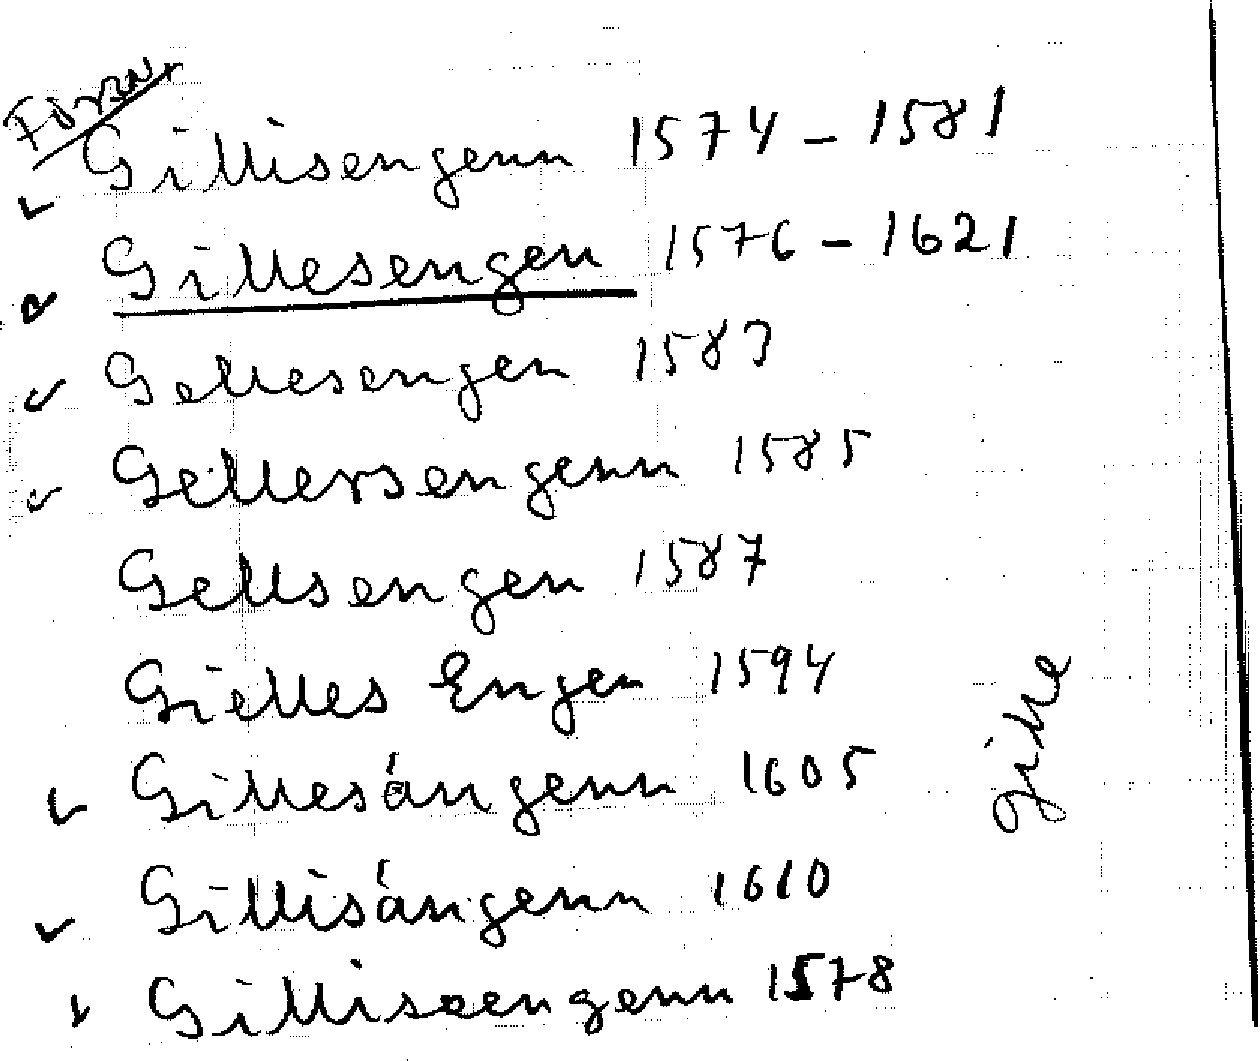 Gillisengenn 1574 - 1581
Gillesengen 1576 - 1621
Gellesengen 1583
Gellersengenn 1585
Gellsengen 1587
Gielles Engen 1594
Gillesángenn 1605
Gillisángenn 1610
Gillisoengenn 1578
Gille